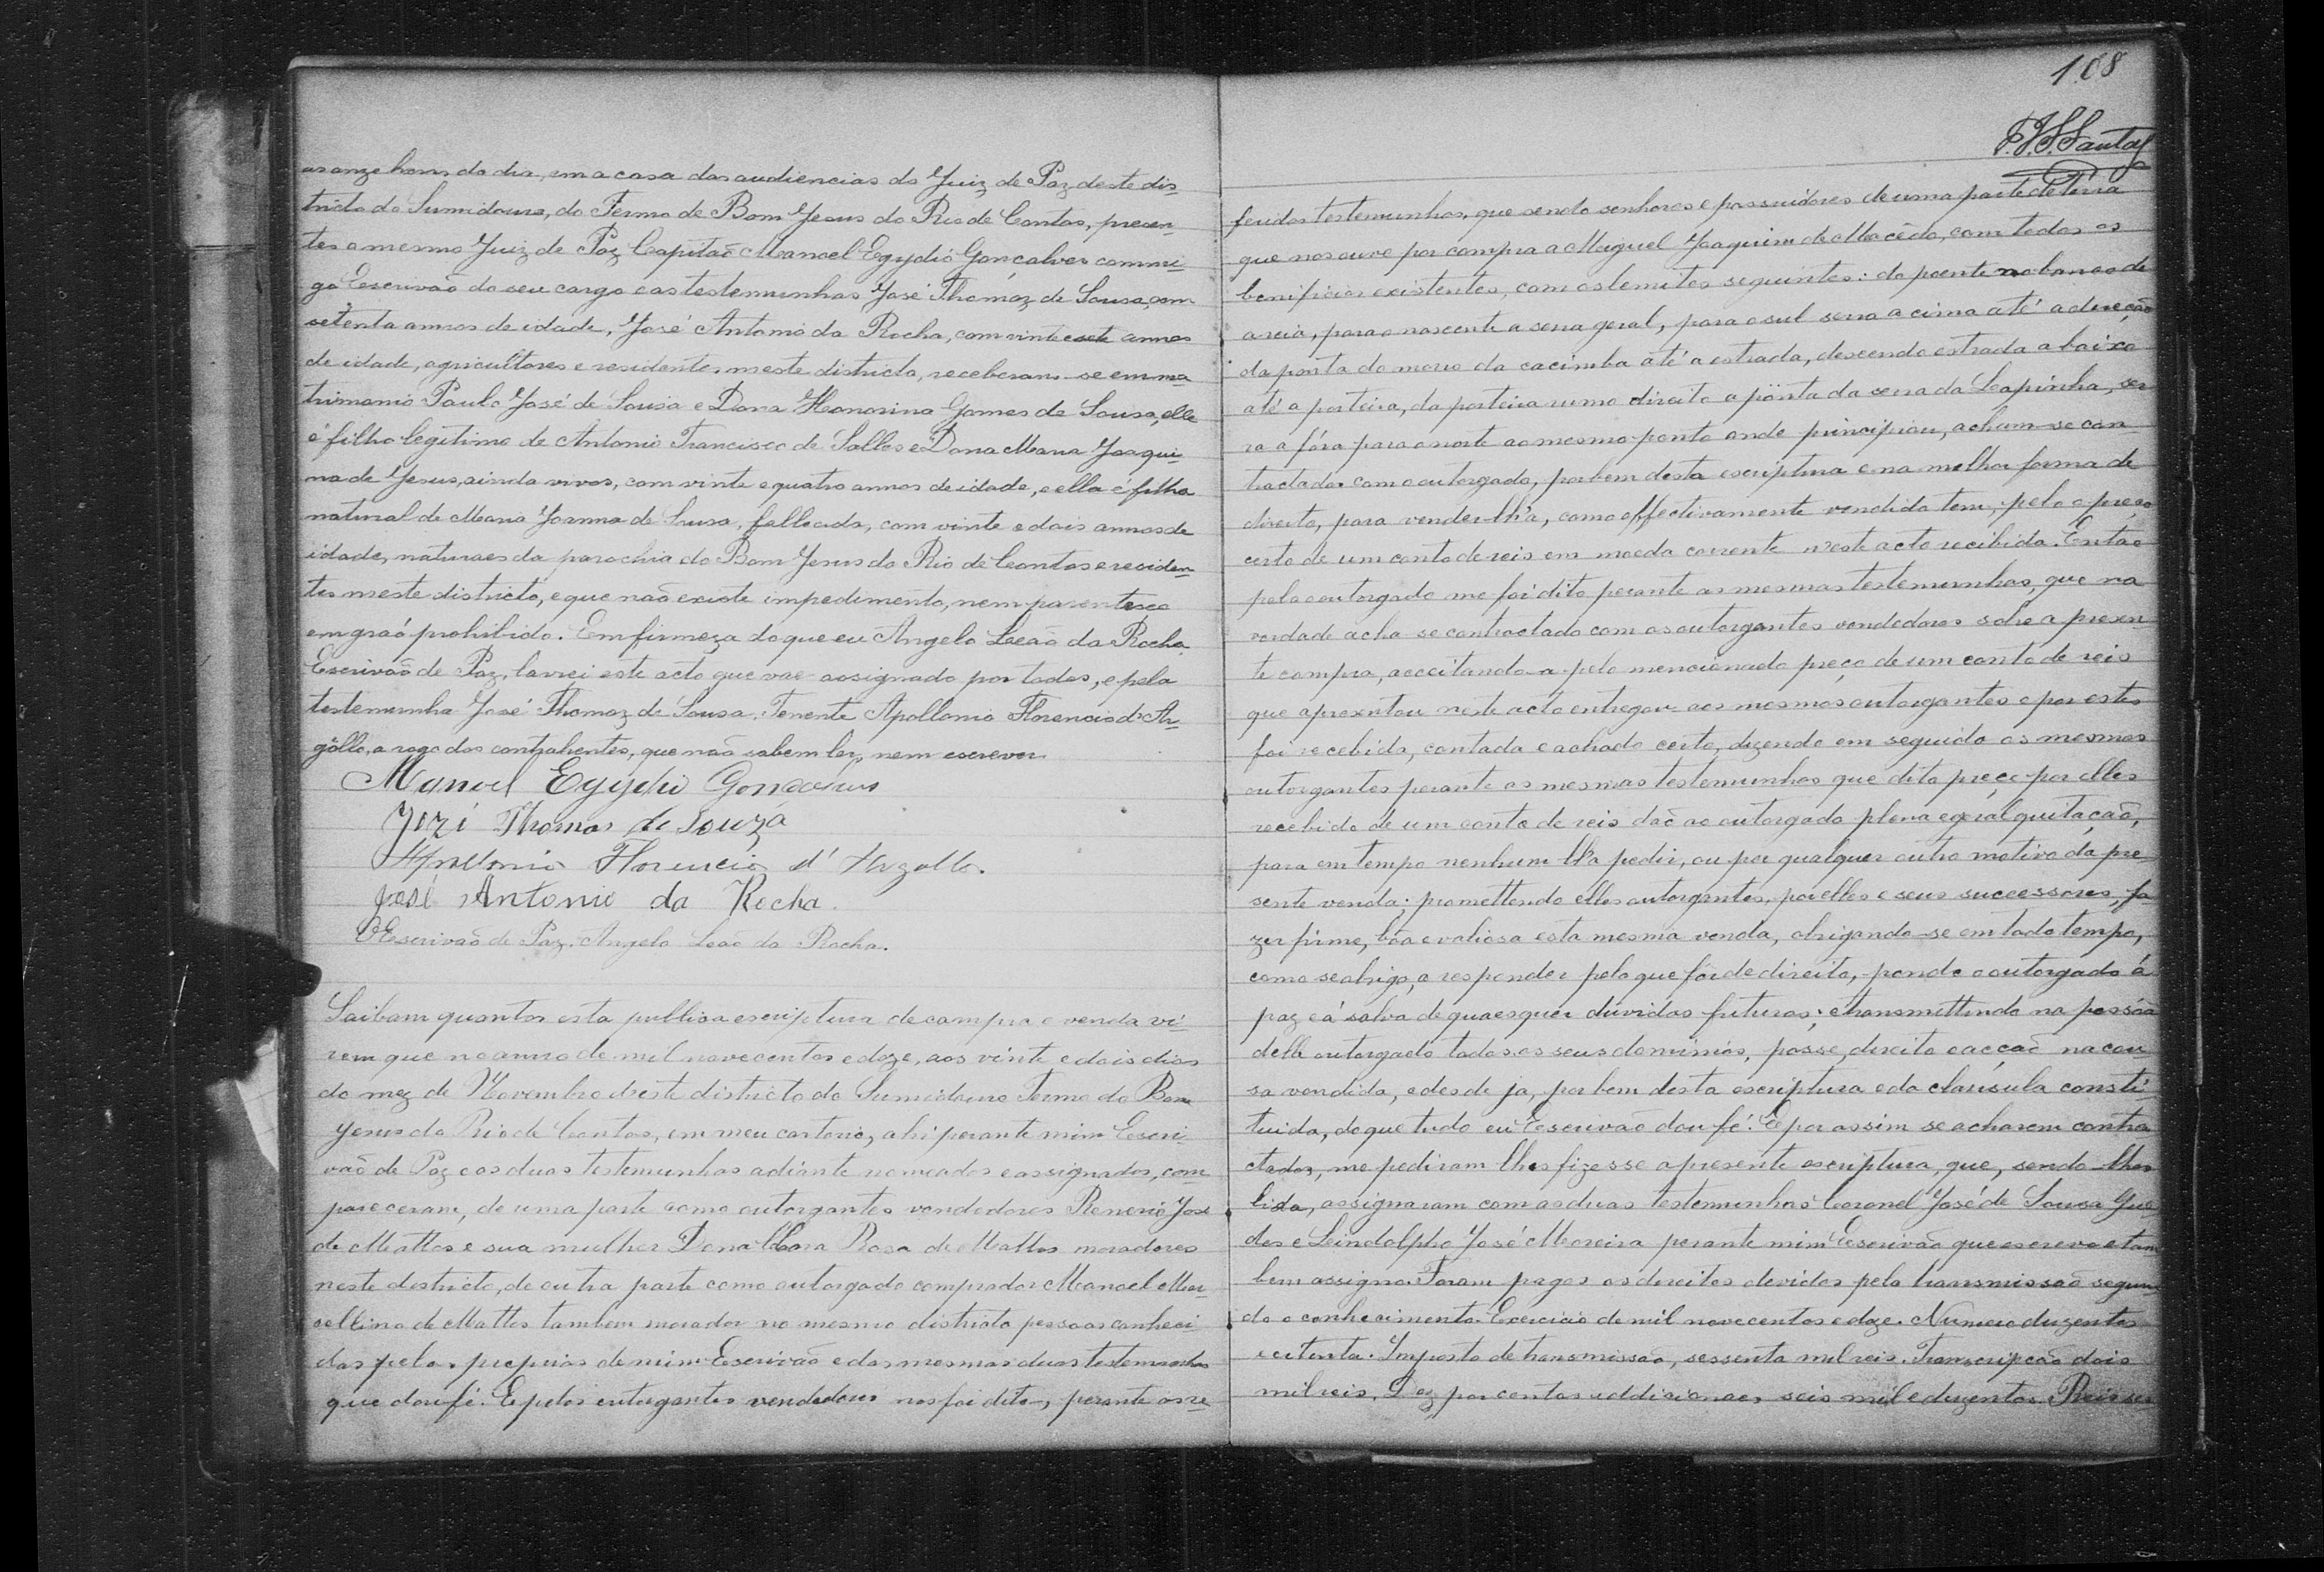 as onze horas do dia, em a casa das audiencias do Juiz de Paz deste dis-
tricto do Sumidouro, do Termo de Bom Jesus do Rio de Contas, presen-
tes o mesmo Juiz de Paz Capitaõ Manoel Egydio Gonçalves commi-
go Escrivaõ do seu cargo e as testemunhas José Thomaz de Sousa, com
setenta annos de idade, José Antonio da Rocha, com vinte e sete annos
de idade, agricultores e residentes neste districto, receberam-se em ma-
trimonio Paulo José de Sousa e Dona Honorina Gomes de Sousa, elle
é filho legitimo de Antonio Francisco de Salles e Dona Maria Joaqui-
na de Jesus, ainda vivos, com vinte e quatro annos de idade, e ella é filha
natural de Maria Joanna de Sousa, fallecida, com vinte e dois annos de
idade, naturaes da parochia do Bom Jesus do Rio de Contas e residen-
tes neste districto, e que naõ existe impedimento, nem parentesco
em graó prohibido. Em firmeza do que eu Angelo Leaõ da Rocha
Escrivaõ de Paz, lavrei este acto que vae assignado por todos, e pela
testemunha José Thomaz de Sousa, Tenente Apollonio Florencio d'Ar-
gôllo, a rogo dos contrahentes, que naõ sabem ler, nem escrever.
Manoel Egydio Gonçalves
Jozé Thomas de Souza
Apollonio Florencio d'Argollo.
José Antonio da Rocha.
O Escrivaõ de Paz, Angelo Leaõ da Rocha.
Saibam quantos esta publica escriptura de compra e venda vi-
rem que no anno de mil novecentos e doze, aos vinte e dois dias
do mez de Novembro neste districto do Sumidouro Termo do Bom
Jesus do Rio de Contas, em meu cartorio, ahi perante mim Escri-
vaõ de Paz e as duas testemunhas adiante nomeadas e assignadas, com-
pareceram, de uma parte como outorgantes vendedores Renerio José
de Mattos e sua mulher Dona Rosa de Mattos moradores
neste destricto, de outra parte como outorgado comprador Manoel Mar-
cellino de Mattos tambem morador no mesmo districto pessoas conheci-
das pelas proprias de mim Escrivaõ e das mesmas duas testemunhas
que dou fé. E pelos outorgantes vendedores nos foi dito, perante as re-
108
P.J.S.Santos
feridas testemunhas, que sendo senhores e possuidores de uma parte de terra
que nos ouve por compra a Miguel Joaquim de Macêdo, com todos os
beneficios existentes, com os lemites seguintes: do poente no banco de
areia, para o nascente a serra geral, para o sul serra a cima até a direcção
da ponta do morro da cacimba até a estrada, descendo estrada a baixo
até a porteira, da porteira rumo direito a ponta da serra da Lapinha, ser-
ra a fóra para o norte ao mesmo ponto onde principiou, acham-se con-
tractados com o outorgado, por bem desta escriptura e na melhor forma de
direito, para vender-lh'a, como effectivamente vendido tem, pelo o preço
certo de um conto de reis em moeda corrente neste acto recibida. Entaõ
pelo outorgado me foi dito perante as mesmas testemunhas, que na
verdade acha-se contractado com os outorgantes vendedores sobre a presen-
te compra, acceitando-a pelo mencionado preço de um conto de reis
que apresentou neste acto entregou aos mesmos outorgantes e por estes
foi recebida, contada e achada certa, dizendo em seguida os mesmos
outorgantes perante as mesmas testemunhas que dito preço por elles
recebido de um conto de reis daõ ao outorgado plena e geral quitaçaõ,
para em tempo nenhum lh'a pedir, ou por qualquer outro motivo da pre-
sente venda; promettendo elles outorgantes, por elles e seus successores, fa-
zer firme, bôa e valiosa esta mesma venda, obrigando-se em todo tempo,
como se obriga, a responder pelo que fôr de direito, pondo o outorgado á
paz e á salvo de quaesquer duvidas futuras; e transmettindo na pessôa
delle outorgado todos os seus dominios, posse, direito e acçaõ na cou-
sa vendida, e desde ja, por bem desta escriptura e da clausula consti-
tuida, do que tudo eu Escrivaõ dou fé. E por assim se acharem contra-
ctados, me pediram lhes fizesse a presente escriptura, que, sendo-lhes
lida, assignaram com as duas testemunhas Coronel José de Sousa Gue-
des e Leindolpho José Moreira perante mim Escrivaõ que escrevo e tam-
bem assigno. Foram pagos os direitos devidos pela transmissaõ segun-
do o conhecimento. Exercicio de mil novecentos e doze. Numero duzentos
e oitenta. Imposto de transmissaõ, sessenta mil reis. Transcripcaõ dois
mil reis, Dez por centos addicionaes, seis mil e duzentos. Reis ses-